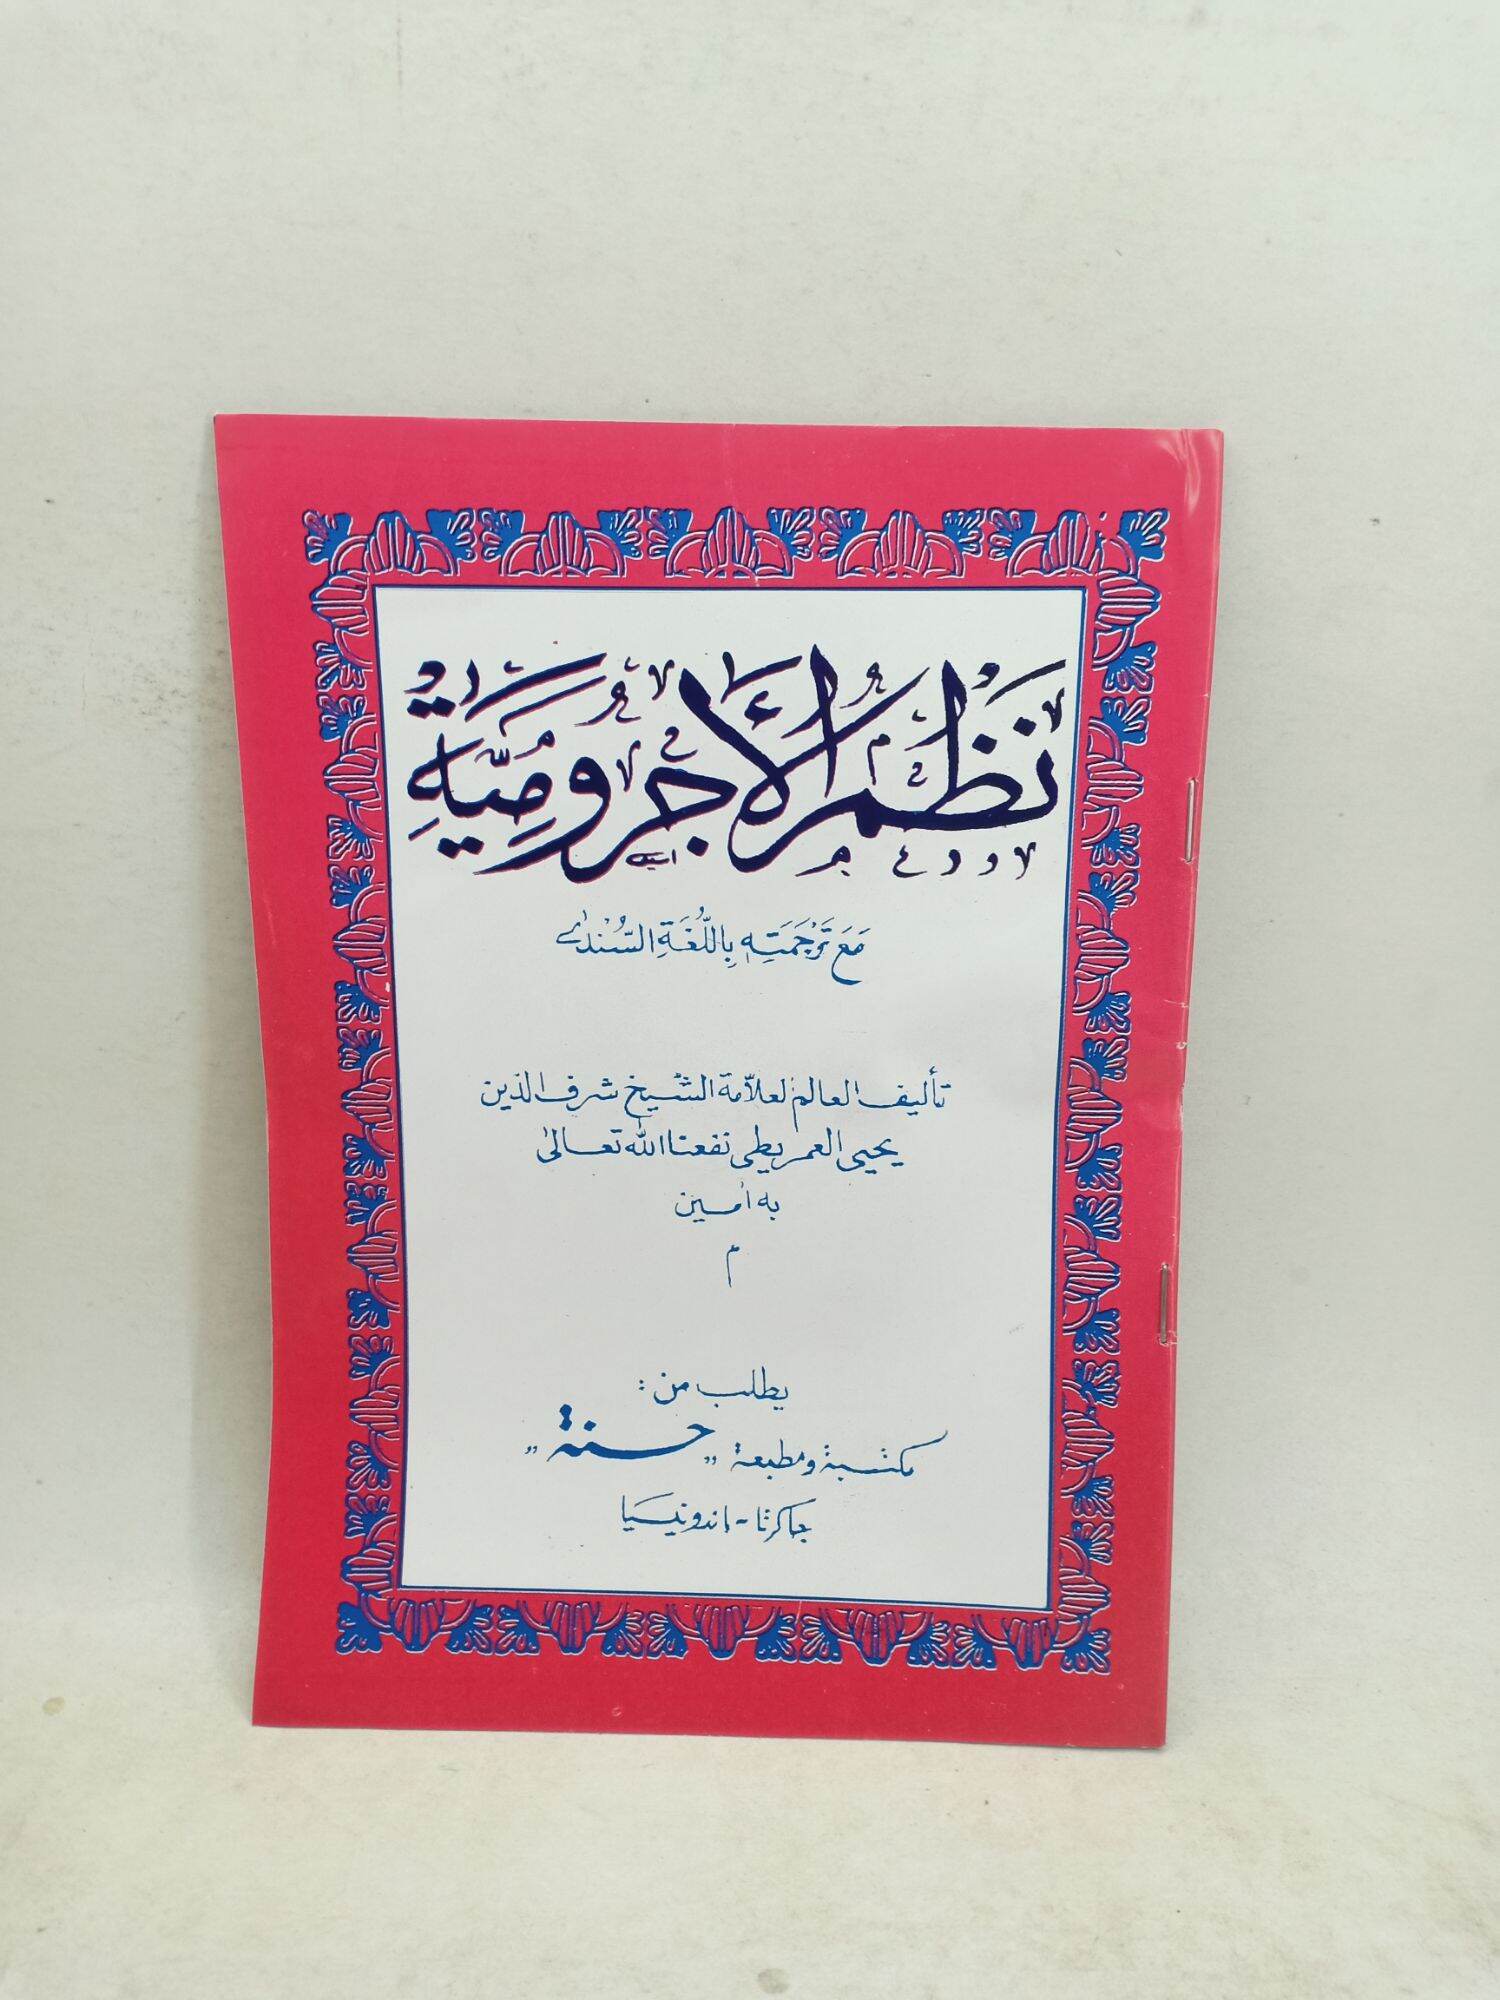 نَظْمُ الْأَجُرُومِيَّةِ
مَعَ تَرْجَمَتِهِ بِاللُّغَةِ السُّنْدَى
تأليف العالم لعلاّمة الشيخ شرف الدين
يحيى العمريطي نفعنا الله تعالى
به امين
م
يطلب من :
مكتبة ومطبعة ,, حسنة ,,
جاكرتا - اندونيسيا